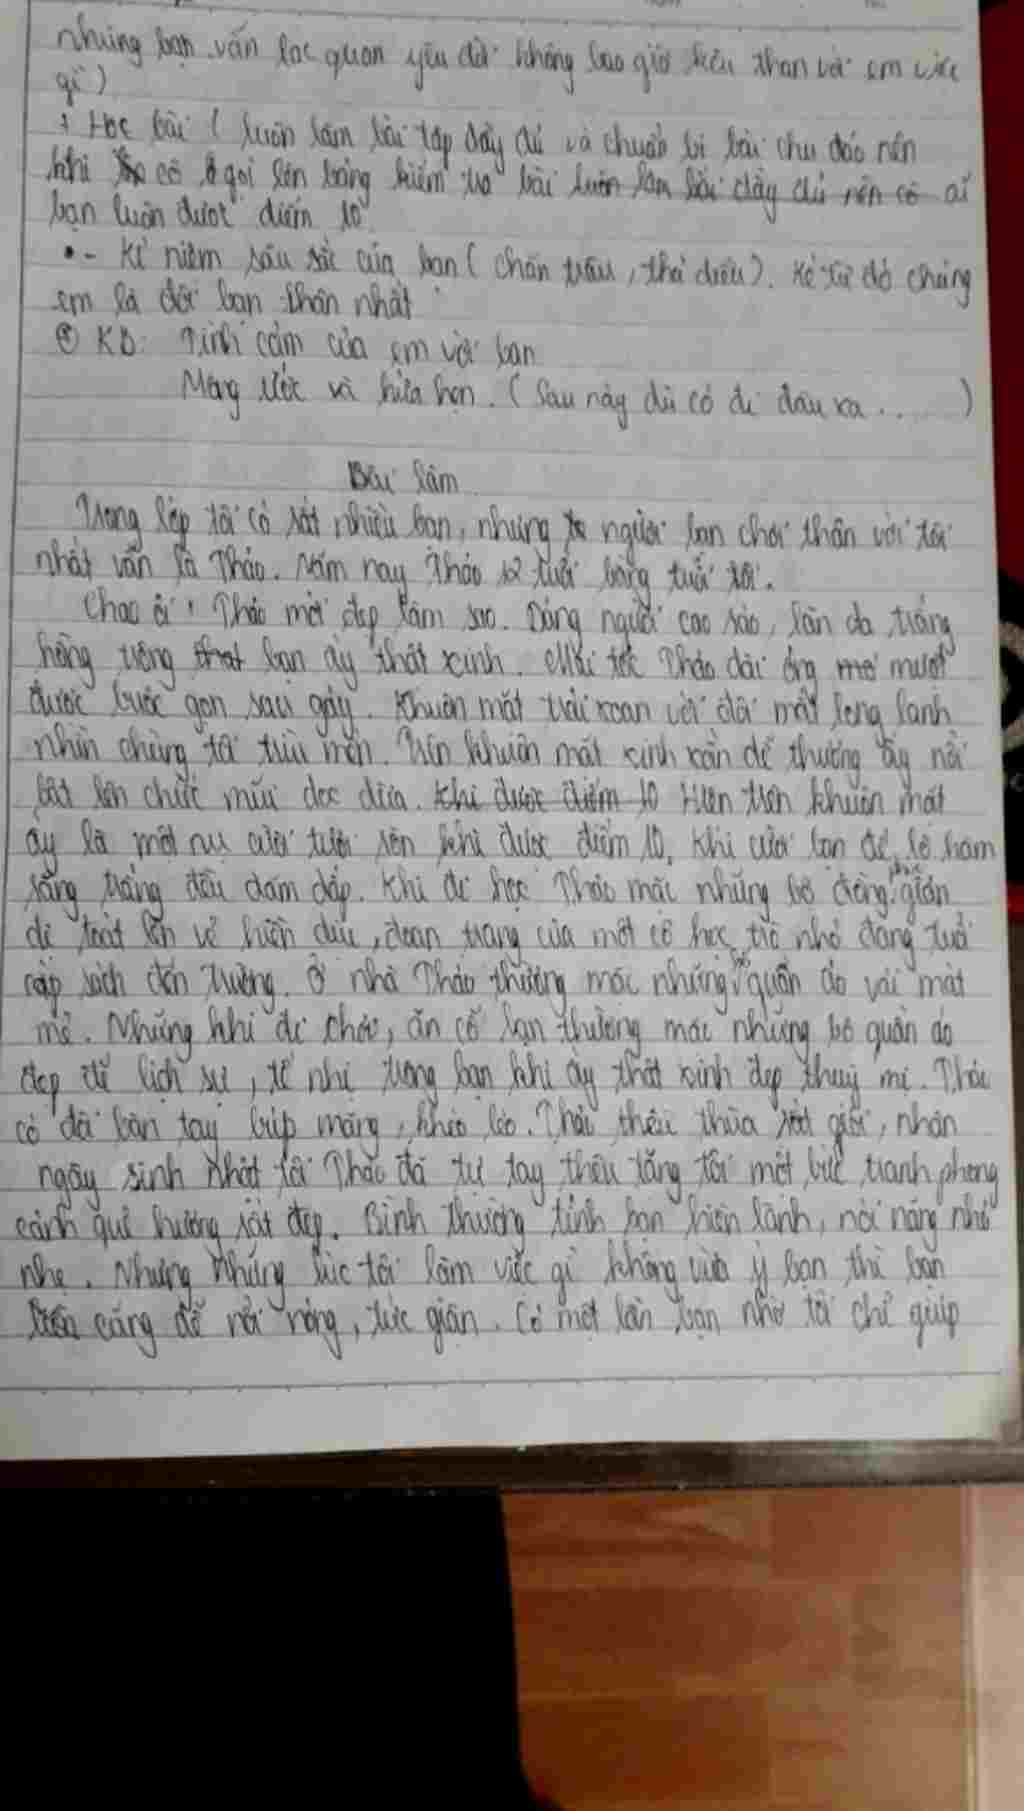 nhưng bạn vẫn lạc quan yêu đời không bao giờ kêu than với em việc
gì)
+ Học bài ( luôn làm bài tập đầy đủ và chuẩn bị bài chu đáo nên
khi cô gọi lên bảng kiểm tra bài luôn làm bài đầy đủ nên cô ai
bạn luôn được điểm 10
- Kỉ niệm sâu sắc của bạn ( chăn trâu, thả diều). Kể từ đó chúng
em là đôi bạn thân nhất
KB: Tình cảm của em với bạn
Mong ước và hứa hẹn. ( Sau này dù có đi đâu xa ... )
Bài làm
Trong lớp tôi có rất nhiều bạn, nhưng người bạn chơi thân với tôi
nhất vẫn là Thảo. Năm nay Thảo 12 tuổi bằng tuổi tôi.
Chao ôi ! Thảo mới đẹp làm sao. Dáng người cao ráo, làn da trắng
hồng trông bạn ấy thật xinh. Mái tóc Thảo dài óng mơ mượt
được buộc gọn sau gáy. Khuôn mặt trái xoan với đôi mắt long lanh
nhìn chúng tôi trìu mến. Trên khuôn mặt xinh xắn dễ thương ấy nổi
bật lên chiếc mũi dọc dừa. Khi được điểm 10 Hiện trên khuôn mặt
ấy là một nụ cười tươi rên khi được điểm 10. Khi cười bạn để lộ hàm
răng trắng đều dăm dắp. Khi đi học Thảo mặc những bộ đồng phục giản
dị toát lên vẻ hiền dịu, đoan trang của một cô học trò nhỏ đang tuổi
cắp sách đến trường. Ở nhà Thảo thường mặc những bộ quần áo vải mát
mẻ. Những khi đi chơi, ăn cỗ bạn thường mặc những bộ quần áo
đẹp để lịch sự, tế nhị trong bạn khi ấy thật xinh đẹp thuỳ mị. Thảo
có đôi bàn tay búp măng, khéo léo. Thảo thêu thùa rất giỏi, nhân
ngày sinh nhật tôi Thảo đã tự tay thêu tặng tôi một bức tranh phong
cảnh quê hương rất đẹp. Bình thường tính bạn hiền lành, nói năng nhỏ
nhẹ. Nhưng những lúc tôi làm việc gì không vừa ý bạn thì bạn
càng dễ nổi nóng, tức giận. Có một lần bạn nhờ tôi chỉ giúp